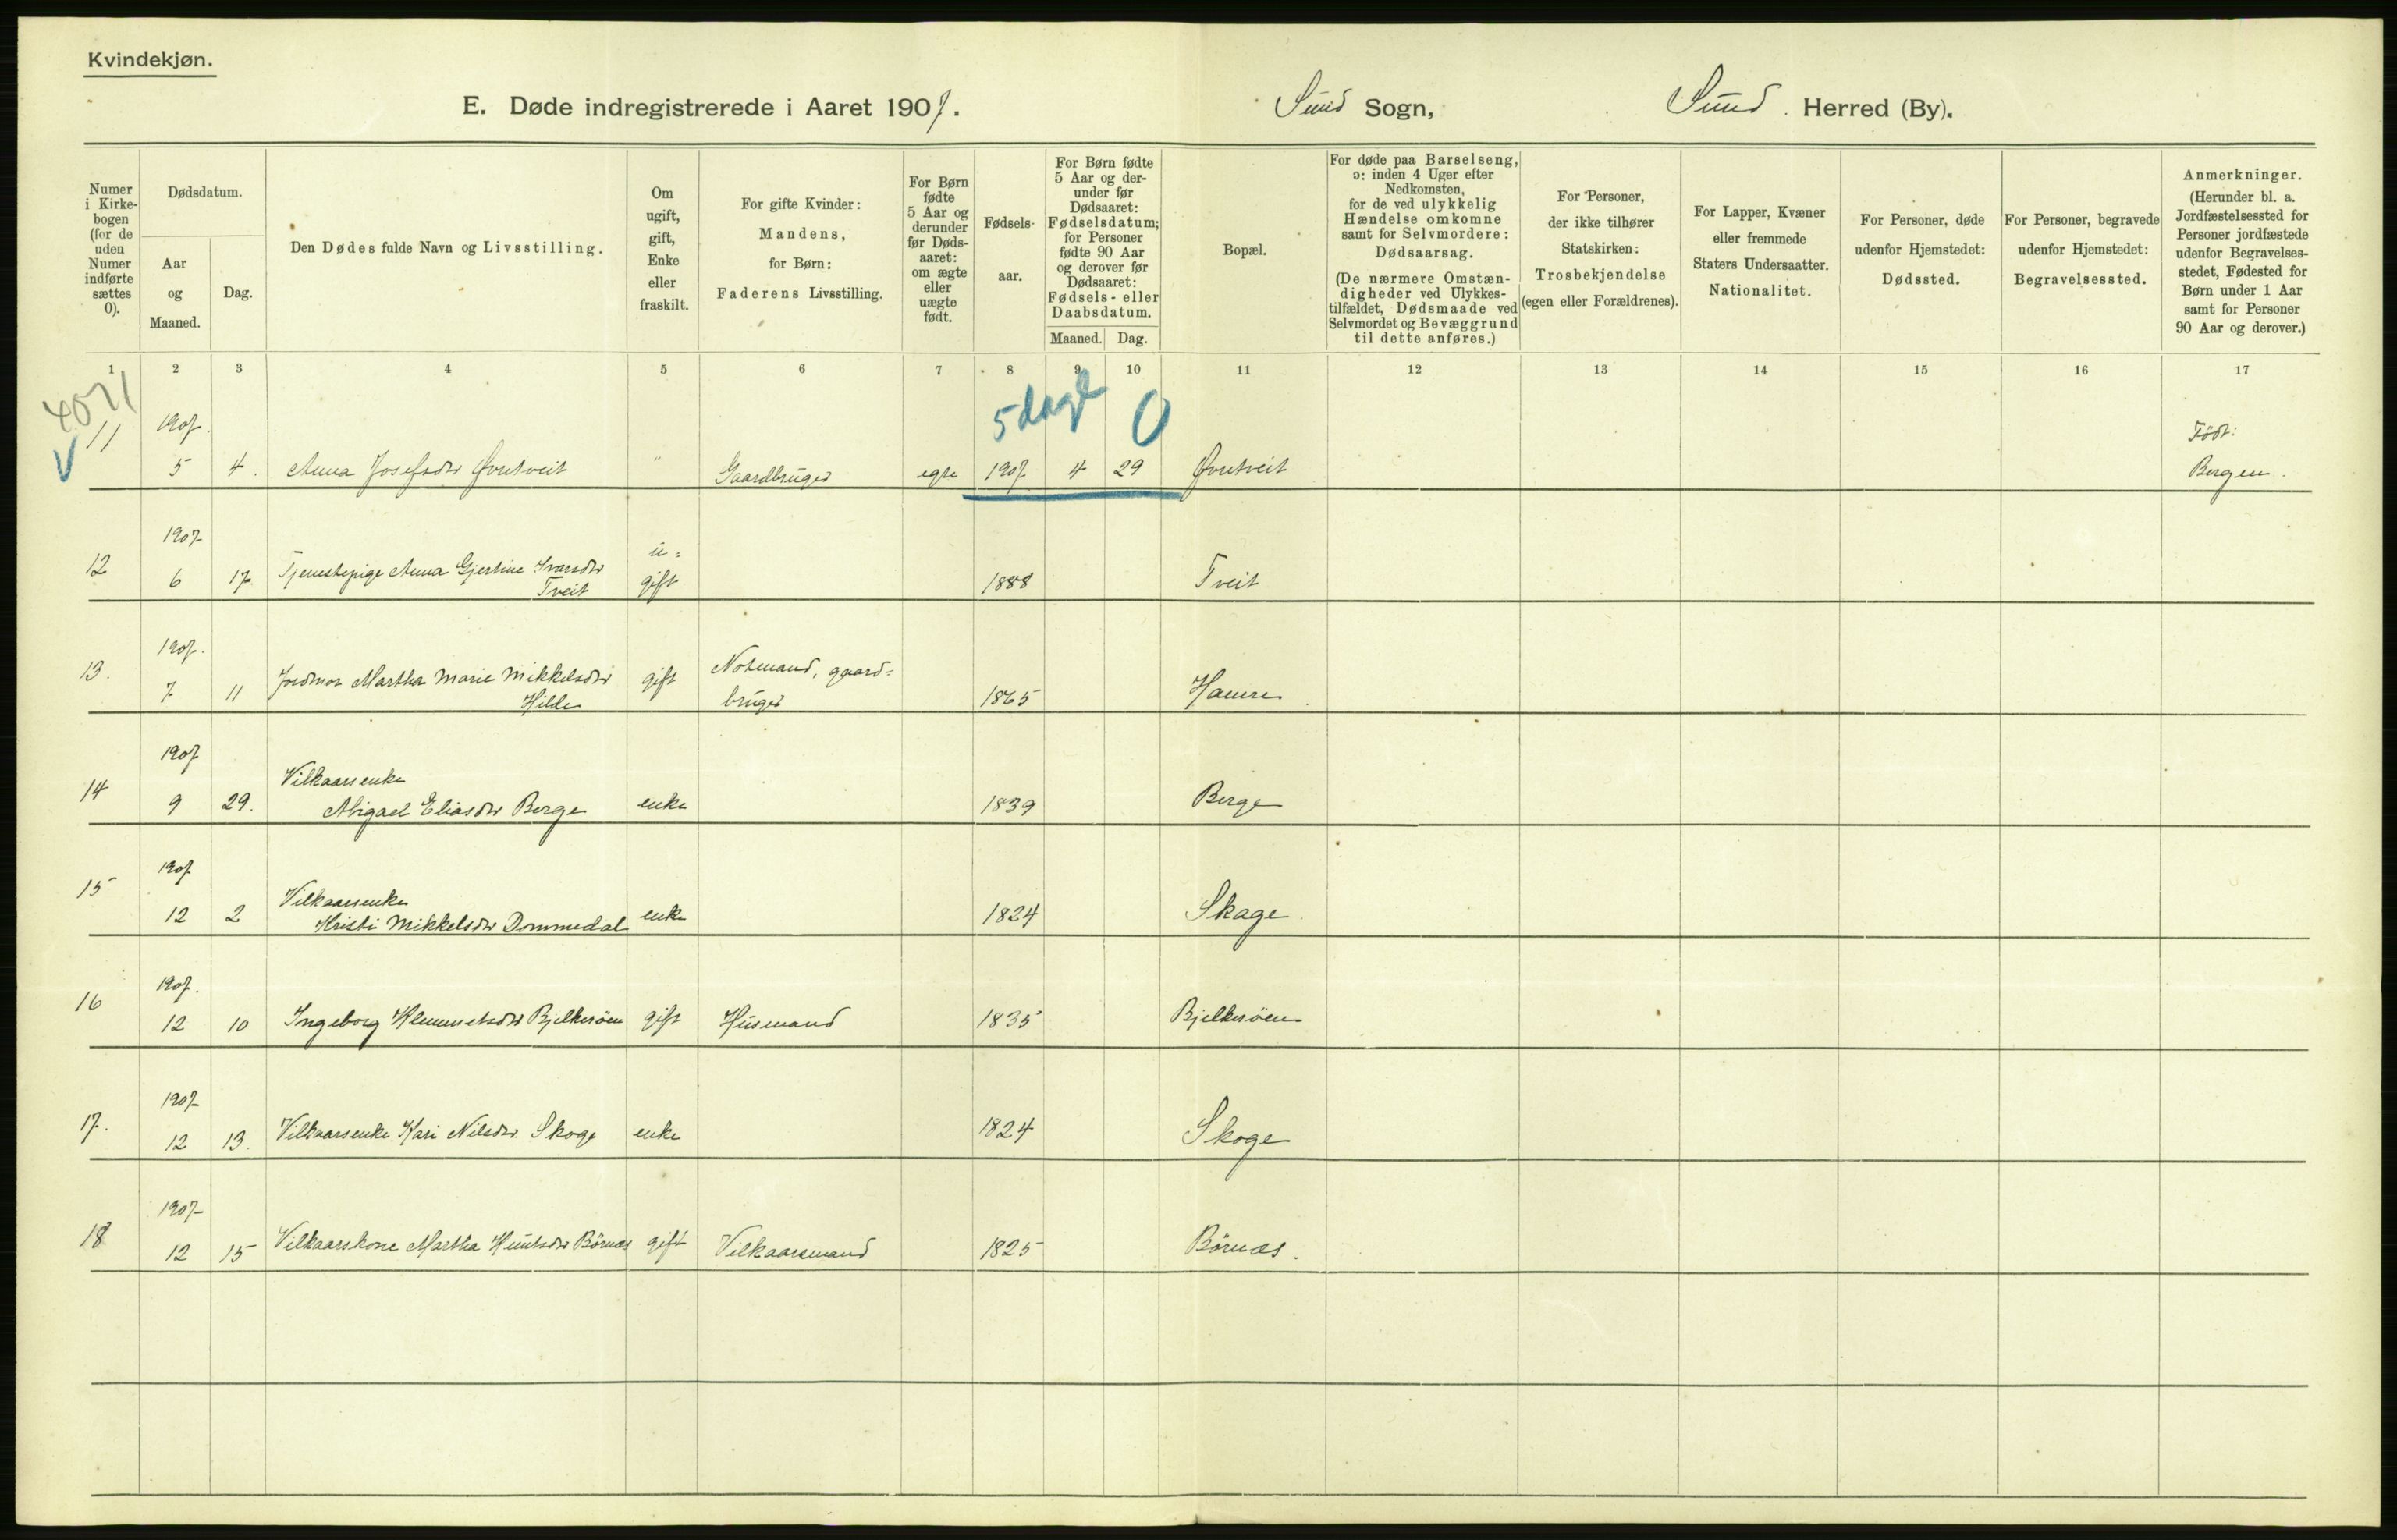 Kvindekjøn.
E. Døde indregistrerede i Aaret 1907. Sund Sogn, Sund. Herred (By).
Numer i Kirkebogen (for de uden Numer indførte sættes 0).
Dødsdatum.
Aar og Maaned.
Dag.
Den Dødes fulde Navn og Livsstilling.
Om ugift, gift, Enke eller fraskilt.
For gifte Kvinder: Mandens, for Børn: Faderens Livsstilling.
For Børn fødte 5 Aar og derunder før Dødsaaret: om ægte eller uægte født.
Fødselsaar.
For Børn fødte 5 Aar og derunder før Dødsaaret: Fødselsdatum; for Personer fødte 90 Aar og derover før Dødsaaret: Fødsels- eller Daabsdatum.
Maaned. Dag.
Bopæl.
For døde paa Barselseng, ɔ: inden 4 Uger efter Nedkomsten, for de ved ulykkelig Hændelse omkomne samt for Selvmordere: Dødsaarsag.
(De nærmere Omstændigheder ved Ulykkestilfældet, Dødsmaade ved Selvmordet og Bevæggrund til dette anføres.)
For Personer, der ikke tilhører Statskirken: Trosbekjendelse (egen eller Forældrenes).
For Lapper, Kvæner eller fremmede Staters Undersaatter. Nationalitet.
For Personer, døde udenfor Hjemstedet: Dødssted.
For Personer, begravede udenfor Hjemstedet: Begravelsessted.
Anmerkninger.
(Herunder bl. a. Jordfæstelsessted for Personer jordfæstede udenfor Begravelsesstedet, Fødested for Børn under 1 Aar samt for Personer 90 Aar og derover.)
1 2 3 4 5 6 7 8 9 10 11 12 13 14 15 16 17
5 dage 0
11 1907. Födt:
5 4. Anna Josefsdtr Øvretveit " Gaardbruger egte 1907 4 29 Øvretveit Bergen.
12 1907 u=
6 17 Tjenestepige Anna Gjertine Ivarsdtr Tveit gift 1888 Tveit
13. 1907. Notmand, gaard=
7 11 Jordmor Martha Marie Mikkelsdtr Hilde gift bruger 1865 Hamre
14 1907 Vilkaarsenke
9 29. Abigael Eliasdtr Berge enke 1839 Berge
15 1907 Vilkaarsenke
12 2 Kristi Mikkelsdtr Dommedal enke 1824 Skage
16 1907.
12 10 Ingeborg Klemmetsdtr Bjelkeröen gift Husmand 1835 Bjelkeröen
17. 1907
12 13. Vilkaarsenke Kari Nilsdtr. Skoge enke 1824 Skoge
18 1907
12 15 Vilkaarskone Martha Knutsdtr Börnæs gift Vilkaarsmand 1825 Börnæs.